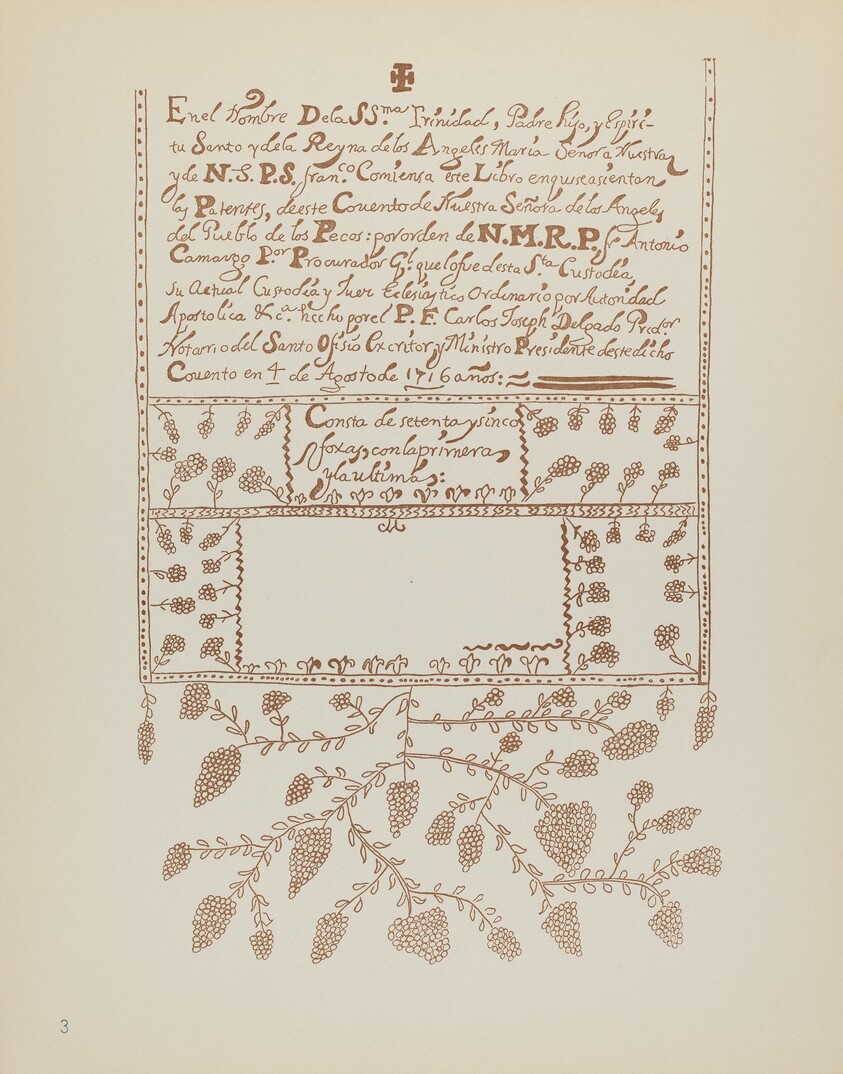 En el Nombre De la SS.ma Trinidad, Padre hijo, y Espiri-
tu Santo y de la Reyna de los Angeles Maria Señora Nuestra
y de N.S. P.S. fran.co Comiensa este Libro en quise asientan
las Patentes, de este Couento de Nuestra Señora de los Angeles
del Pueblo de los Pecos: por orden de N.M.R.P. fr Antonio
Camargo P.or Procurador G.l que lo fue desta S.ta Custodia,
su Actual Custodia y Juez Eclesiastico Ordinario por Autoridad
Apostolica &c.a hecho por el P. F. Carlos Joseph Delgado Pred.or
Notario del Santo Ofisio Excritor, y Ministro Presidente deste dicho
Couento en 4 de Agosto de 1716 años:
Consta de setenta y sinco
foxas, con la primera,
y la ultima:
3